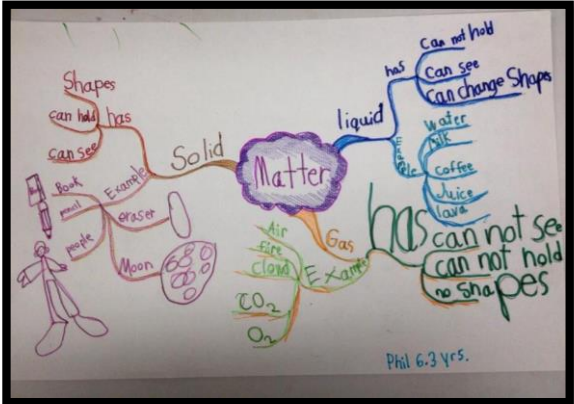 Matter
Solid
has
Shapes
can hold
can see
Example
Book
pencil
people
eraser
Moon
liquid
has
Can not hold
Can see
Can change Shapes
Example
Water
Milk
coffee
Juice
lava
Gas
has
can not see
can not hold
no shapes
Example
Air
Fire
Clowd
CO2
O2
Phil 6.3 yrs.